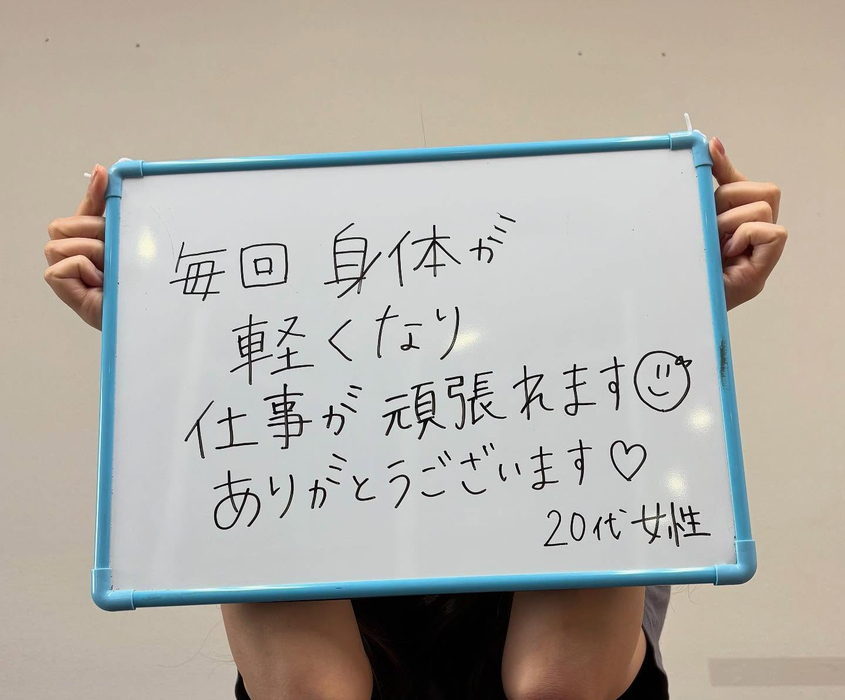 毎回 身体が
軽くなり
仕事が 頑張れます
ありがとうございます♡
20代 女性